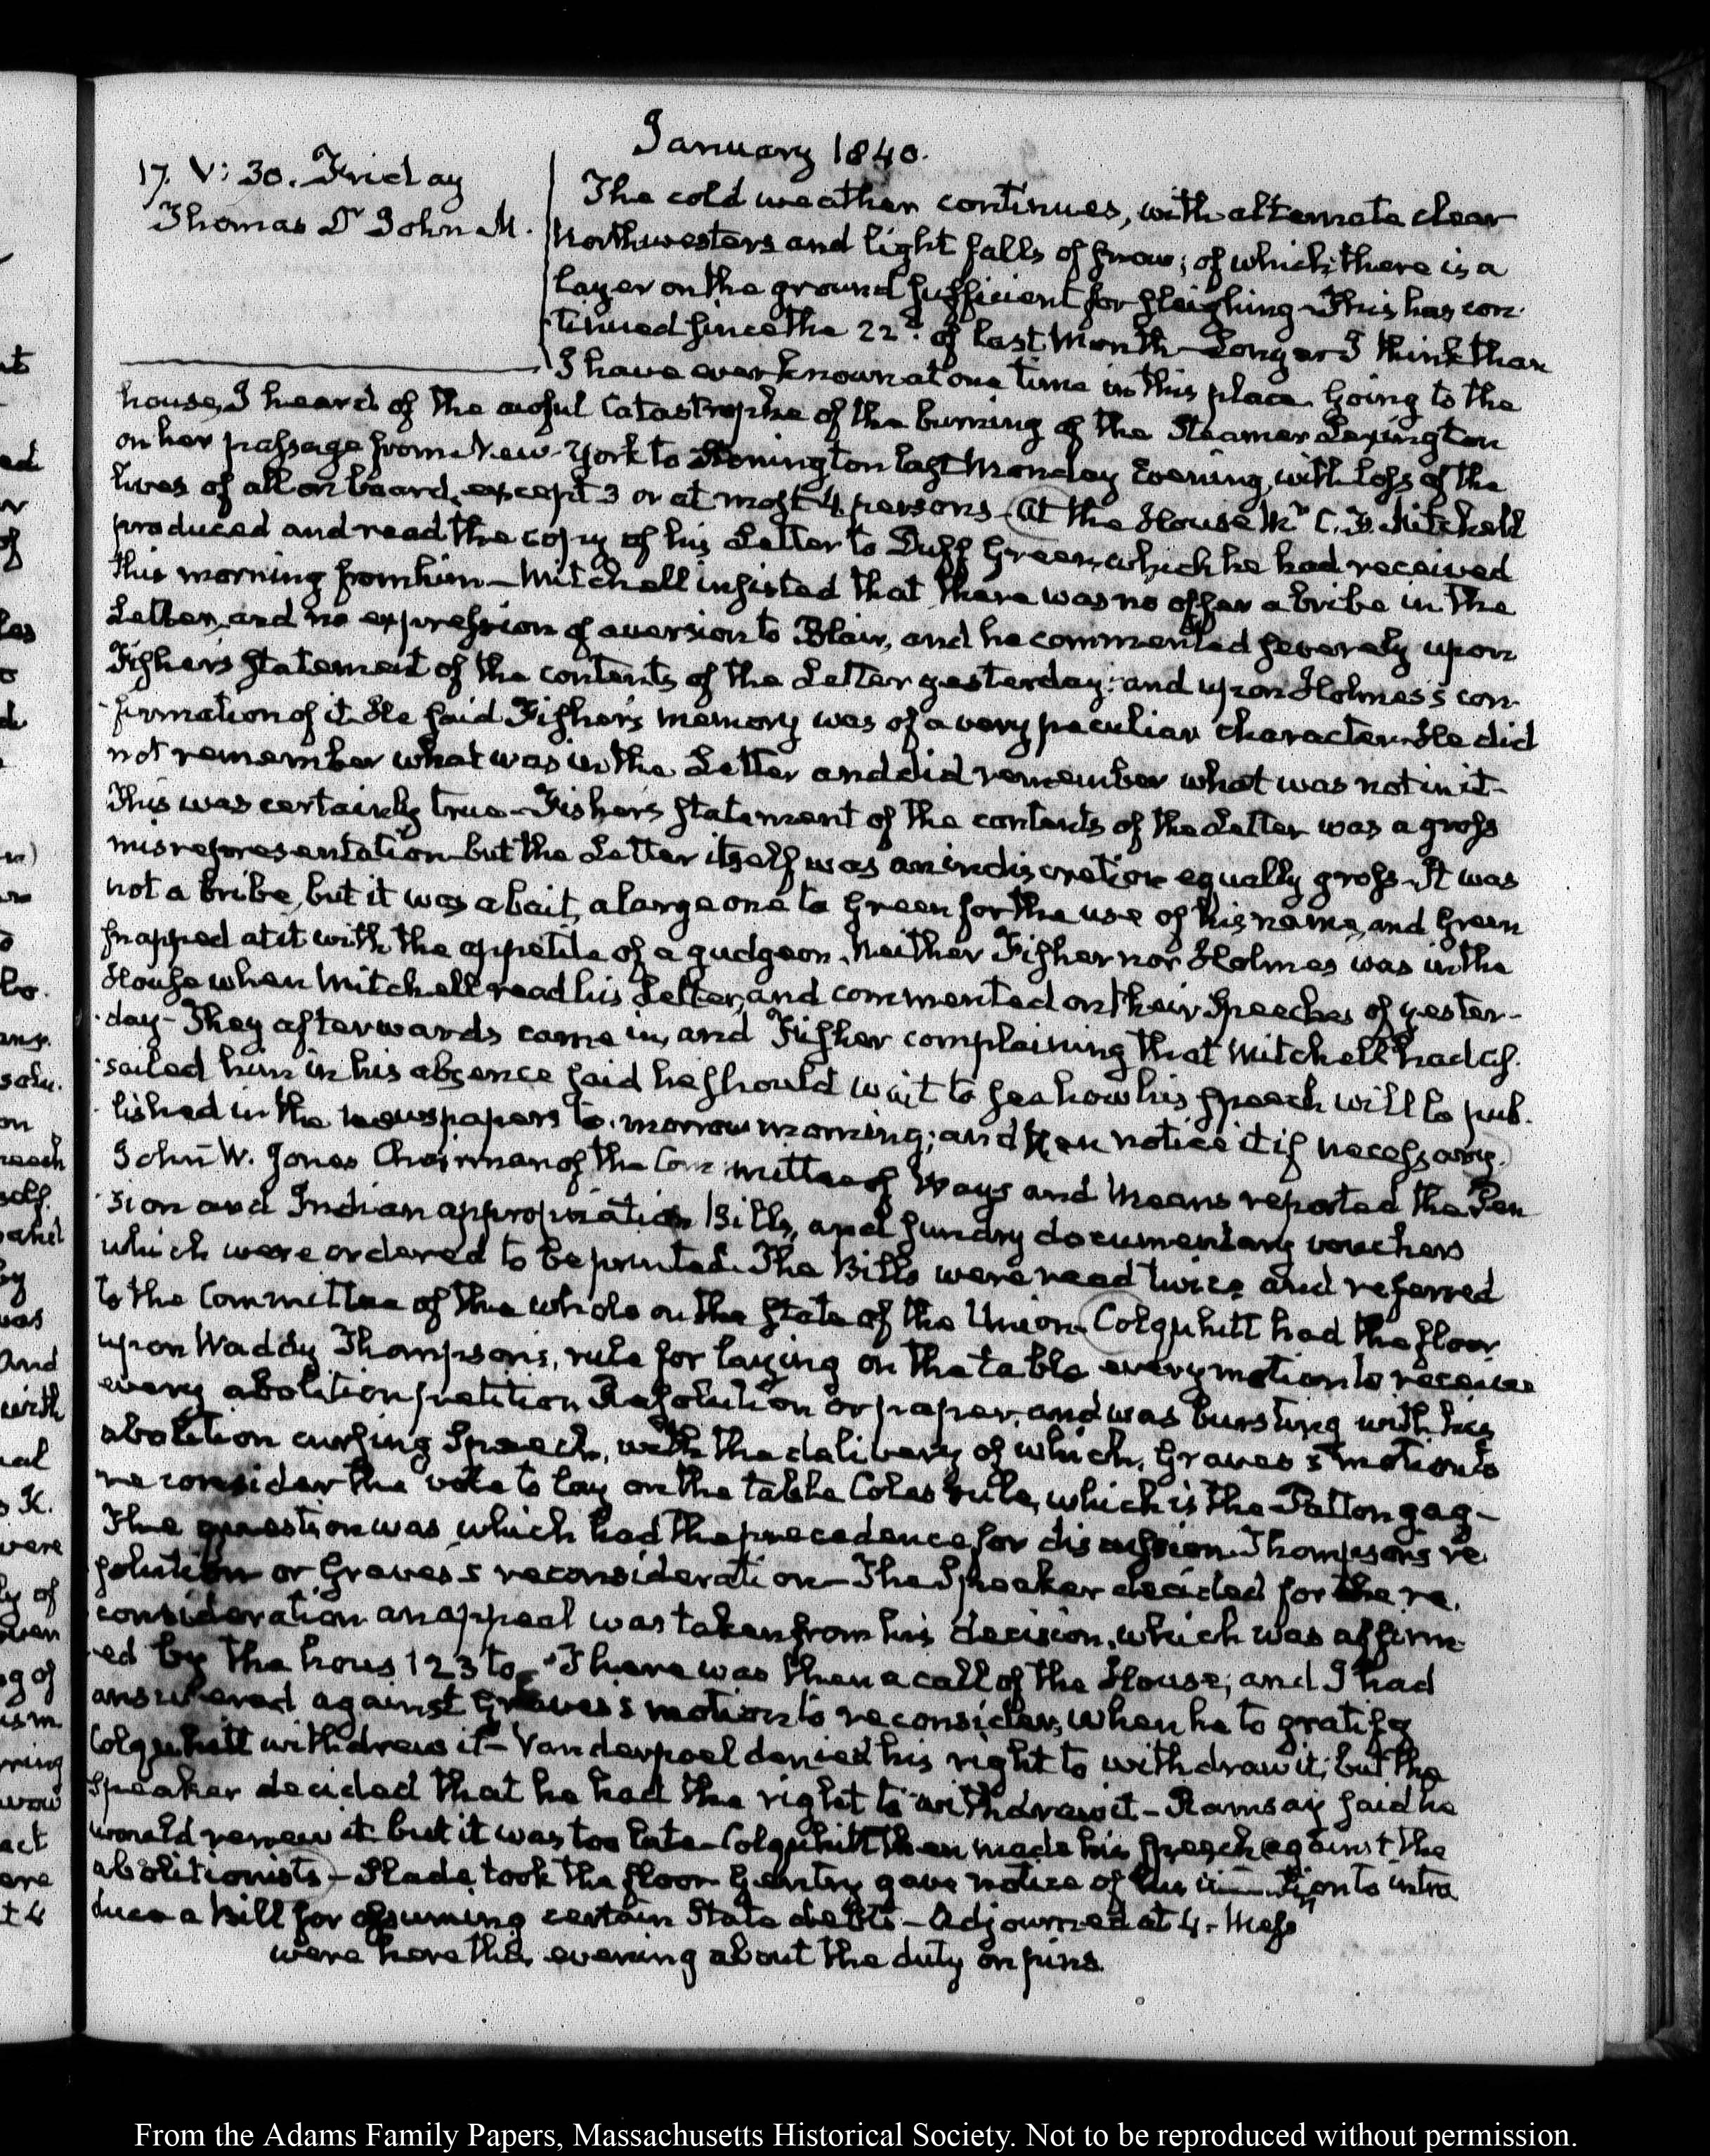 January 1840.
17. V: 30. Friday
Thomas Dr John M.
The cold weather continues, with alternate clear
Northwesters and light falls of snow; of which there is a
layer on the ground sufficient for sleighing. This has con-
tinued since the 22d. of last Month—Longer I think than
I have ever known at one time in this place. Going to the
house, I heard of the awful Catastrophe of the burning of the Steamer Lexington
on her passage from New-York to Stonington last Monday Evening, with loss of the
lives of all on board, except 3 or at most 4 persons. At the House Mr C. F. Mitchell
produced and read the copy of his Letter to Duff Green, which he had received
this morning from him—Mitchell insisted that there was no offer a bribe in the
Letter, and no expression of aversion to Blair, and he commented severely upon
Fisher's statement of the contents of the Letter yesterday; and upon Holmes's con-
firmation of it. He said Fisher's memory was of a very peculiar character. He did
not remember what was in the Letter and did remember what was not in it-
This was certainly true—Fisher's statement of the contents of the Letter was a gross
misrepresentation but the Letter itself was an indiscretion equally gross. It was
not a bribe, but it was a bait, a large one to Green for the use of his name, and Green
snapped at it with the appetite of a gudgeon. Neither Fisher nor Holmes was in the
House when Mitchell read his Letter, and commented on their Speeches of yester-
day- They afterwards came in, and Fisher complaining that Mitchell had as-
sailed him in his absence said he should wait to see how his speech will to pub-
lished in the newspapers to-morrow morning; and then notice it if necessary.
John W. Jones Chairman of the Committee of Ways and Means reported the Pen
sion and Indian appropriation Bills, and sundry documentary vouchers
which were ordered to be printed. The Bills were read twice and referred
to the Committee of the whole on the state of the Union. Colquhitt had the floor
upon Waddy Thompson's, rule for laying on the table every motion to receive
every abolition petition Resolution or paper, and was bursting with his
abolition cursing Speech, with the delivery of which, Graves's motion to
reconsider the vote to lay on the table Coles rule, which is the Patton gag-
The question was which had the precedence for discussion Thompson's re
solution or Graves's reconsideration—The Speaker decided for the re-
consideration an appeal was taken from his decision, which was affirm-
ed by the house 123 to . There was then a call of the House; and I had
answered against Graves's motion to reconsider, when he to gratify
Colquhitt withdrew it— Vanderpoel denied his right to withdraw it; but the
Speaker decided that he had the right to withdraw it— Ramsay said he
would renew it but it was too late—Colquhitt then made his speech against the
abolitionists—Slade took the floor Gentry gave notice of his intention to intro
duce a Bill for assuming certain State debts—Adjourned at 4. Messrs
were here this evening about the duty on pins.
From the Adams Family Papers, Massachusetts Historical Society. Not to be reproduced without permission.